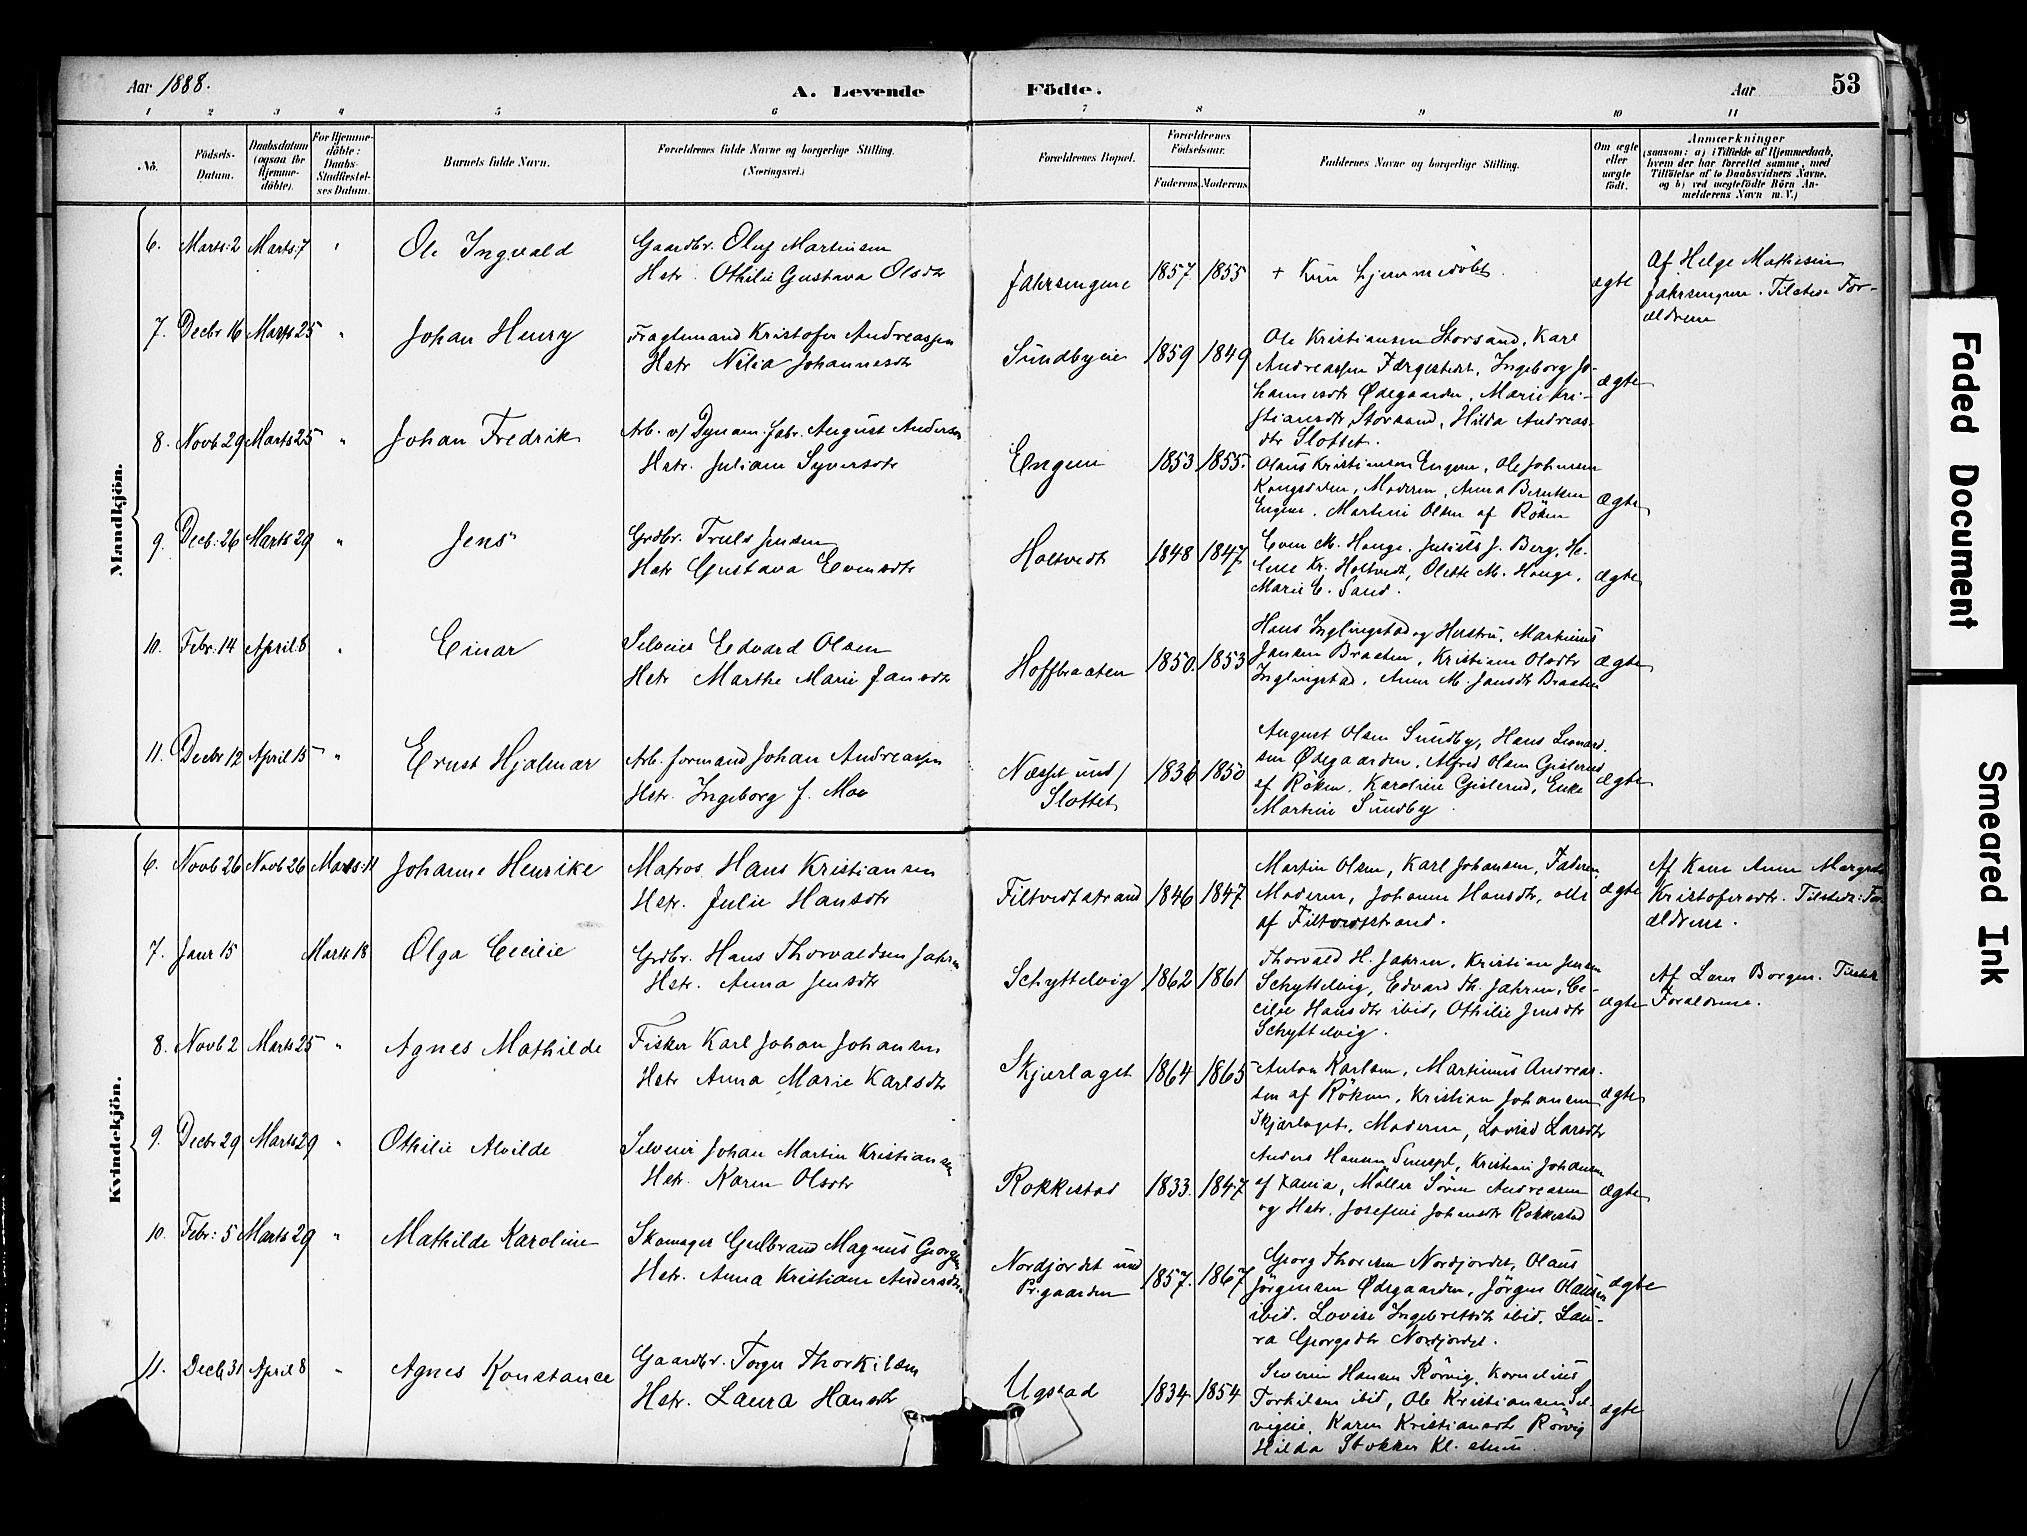 Aar 1888.
A. Levende
Födte.
Aar
53
1 2 3 4 5 6 7 8 9 10 11
No.
Födsels-
Datum.
Daabsdatum
(ogsaa for
Hjemme-
döbte).
For Hjemme-
döbte:
Daabs-
Stadfæstel-
ses Datum.
Barnets fulde Navn.
Forældrenes fulde Navne og borgerlige Stilling.
(Næringsvei.)
Forældrenes Bopæl.
Forældrenes
Födselsaar.
Faderens. Moderens.
Faddernes Navne og borgerlige Stilling.
Om ægte
eller
uægte
født.
Anmærkninger
(saasom: a) i Tilfælde af Hjemmedaab,
hvem der har forrettet samme, med
Tilföielse af to Daabsvidners Navne,
og b) ved uægtefödte Börn An-
melderens Navn m. V.)
Mandkjön.
6. Marts: 2 Marts: 7 " Ole Ingvald
Gaardbr. Oluf Martinsen
Hstr. Othilie Gustava Olsdtr
Jahrsengene 1857 1855
+ Kun hjemmedöbt.
ægte
Af Helge Mathisen
Jahrsengene. Tilstede For-
ældrene
7. Decbr 16 Marts 25 " Johan Henry
Fragtemand Kristofer Andreassen
Hstr Nilia Johannesdtr
Sundbyeie 1859 1849
Ole Kristiansen Storsand, Karl
Andreassen Færgestedet, Ingeborg Jo-
hannesdtr Ødegaarden, Marie Kri-
stiansdtr Storsand, Hilda Andreas-
dtr Slottet.
ægte
8. Novb 29 Marts 25 " Johan Fredrik
Arb. v/ Dynam. fabr. August Andersen
Hstr. Juliane Syversdtr
Engene 1853 1855.
Olaus Kristiansen Engene, Ole Johnsen
Kongsdelen, Moderen, Anna Berntsen
Engene, Martine Olsen af Röken
ægte
9. Decb: 26 Marts 29 " Jens
Grdbr. Truls Jensen
Hstr Gustava Evensdtr
Holtvedt 1848 1847
Even M. Hauge, Julius J. Berg, He-
lene Kr. Holtvedt, Olette M. Hauge,
Marie E. Sand.
ægte
10. Febr. 14 April 8 " Einar
Selveier Edvard Olsen
Hstr Marthe Marie Jansdtr
Hoffbraaten 1850. 1853
Hans Inglingstad og Hustru, Martinius
Jansen Braaten, Kristiane Olsdtr
Inglingstad, Anne M. Jansdtr Braaten
ægte
11. Decbr 12 April 15 " Ernst Hjalmar
Arb. formand Johan Andreassen
Hstr. Ingeborg J. Moe
Næsset und/
Slottet 1836 1850
August Olsen Sundby, Hans Leonard-
sen Ødegaarden, Alfred Olsen Gislerud
af Röken, Karoline Gislerud, Enke
Martine Sundby
ægte
Kvindekjön.
6. Novb 26 Novb 26 Marts 11 Johanne Henrike
Matros Hans Kristiansen
Hstr. Julie Hansdtr
Filtvedtstrand 1846 1847
Martin Olsen, Karl Johansen, Faderen,
Moderen, Johanne Hansdtr, alle
af Filtvedtstrand.
ægte
Af Kone Anne Margrete
Kristofersdtr. Tilstede: For-
ældrene.
7. Janr 15 Marts 18 Olga Cecilie
Grdbr. Hans Thorvaldsen Jahren
Hstr. Anna Jensdtr
Schyttelvig 1862 1861
Thorvald H. Jahren, Kristian Jensen
Schyttelvig, Edvard Th. Jahren, Ce-
cilie Hansdtr ibid, Othilie Jensdtr
Schyttelvig.
ægte
Af Borgen. Tilstede
Forældrene.
8. Novb 2 Marts 25 " Agnes Mathilde
Fisker Karl Johan Johansen
Hstr Anna Marie Karlsdtr
Skjærlaget 1864 1865
Anton Karlsen, Martinius Andreas-
sen af Röken, Kristian Johansen
Skjærlaget, Moderen, Lovise Larsdtr
ægte
9. Decbr 29 Marts 29 " Othilie Alvilde
Selveier Johan Martin Kristiansen
Hstr. Karen Olsdtr
Rokkestad 1833. 1847
Anders Hansen, Kristian Johansen
af Xania, Möller Sören Andreasen
og Hstr. Josefine Johansdtr Rokkestad
ægte
10. Febr: 5 Marts 29 " Mathilde Karoline
Skomager Gulbrand Magnus Georgsen
Hstr. Anna Kristiane Andersdtr.
Nordjordet und
Pr.gaarden 1857. 1867
Georg Thoresen Nordjordet, Olaus
Jörgensen Ødegaarden, Jörgen Olausen
ibid. Lovise Ingebretsdtr ibid, Lau-
ra Georgsdtr Nordjordet.
ægte
11. Decb 31 April 8 " Agnes Konstance
Gaardbr. Torger Thorkilsen
Hstr. Laura Hansdtr
Ugstad 1834 1854
Severin Hansen Rörvig, Kornelius
Torkilsen ibid, Ole Kristiansen Sel-
vigeie, Karen Kristiansdtr Rörvig
Hilda Stokker Kl.
ægte
Faded Document
Smeared Ink